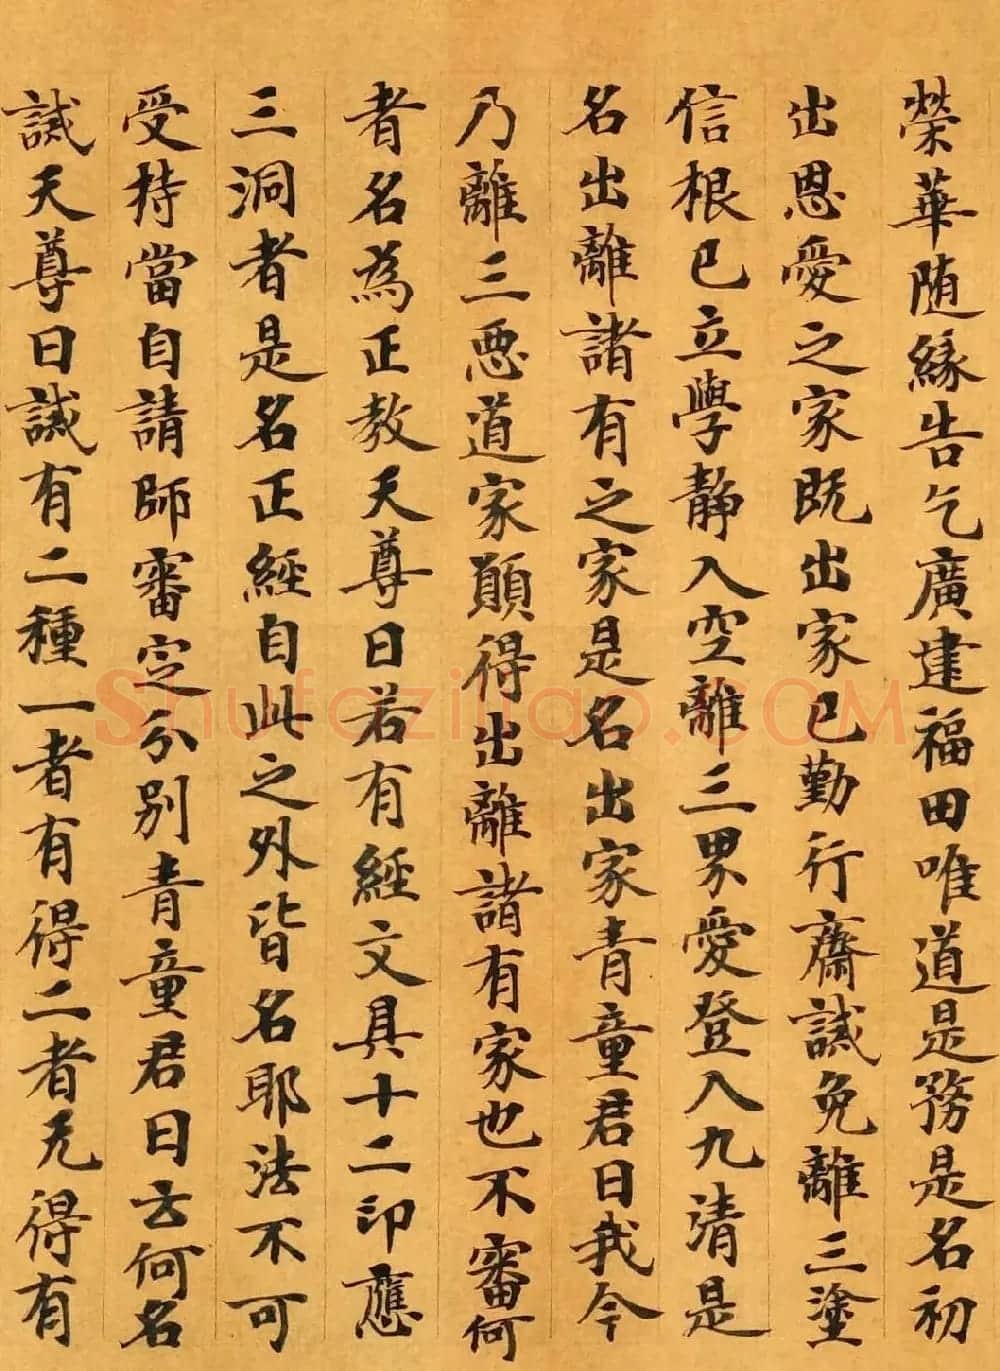 榮華随緣告乞廣建福田唯道是務是名初
出恩愛之家既出家已勤行齋誡免離三塗
信根已立學静入空離三界愛登入九清是
名出離諸有之家是名出家青童君曰我今
乃離三惡道家願得出離諸有家也不審何
者名為正教天尊曰若有經文具十二印應
三洞者是名正經自此之外皆名耶法不可
受持當自請師審定分別青童君曰云何名
誡天尊曰誡有二種一者有得二者无得有
Shufaziliao.COM